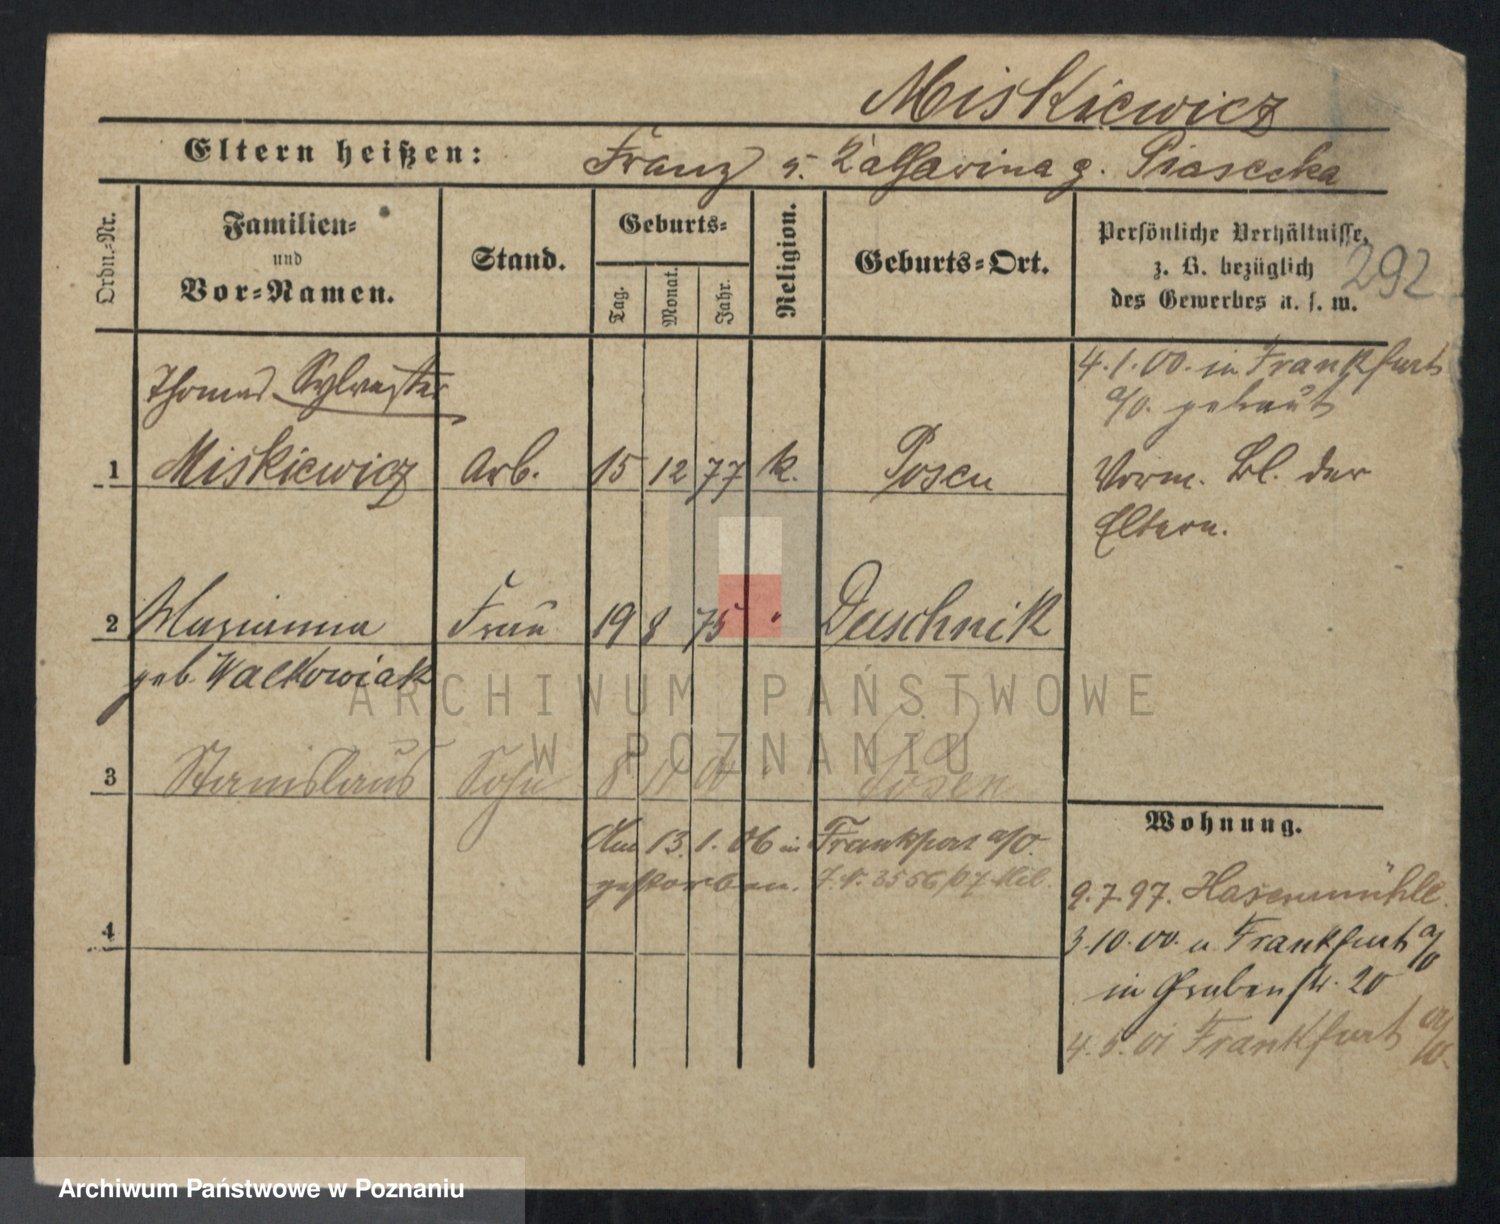 Miskiewicz
Eltern heißen: Franz u. Katharina g. Piasecka
Ordn.-Nr.
Familien-
und
Vor-Namen.
Stand.
Geburts-
Tag.
Monat.
Jahr.
Religion.
Geburts-Ort.
Persönliche Verhältnisse,
z. B. bezüglich
des Gewerbes u. s. w.
292
Thomas Sylvester
1 Miskiewicz Arb. 15 12 77 k. Posen
4.1.00. in Frankfurt
a/O. getraut
Vorm. Bl. der
Eltern.
2 Marianna Frau 19 8 75 " Duschnik
geb. Walkowiak
3 Stanislaus Sohn 8 11 Posen
Am 13.1.06 in Frankfurt a/O.
gestorben. 3556/07
4
Wohnung.
9.7.97. Hasenmühle.
3.10.00. n. Frankfurt a/O
in Grubenstr. 20
4.5.01 Frankfurt a/O.
ARCHIWUM PAŃSTWOWE
W POZNANIU
Archiwum Państwowe w Poznaniu